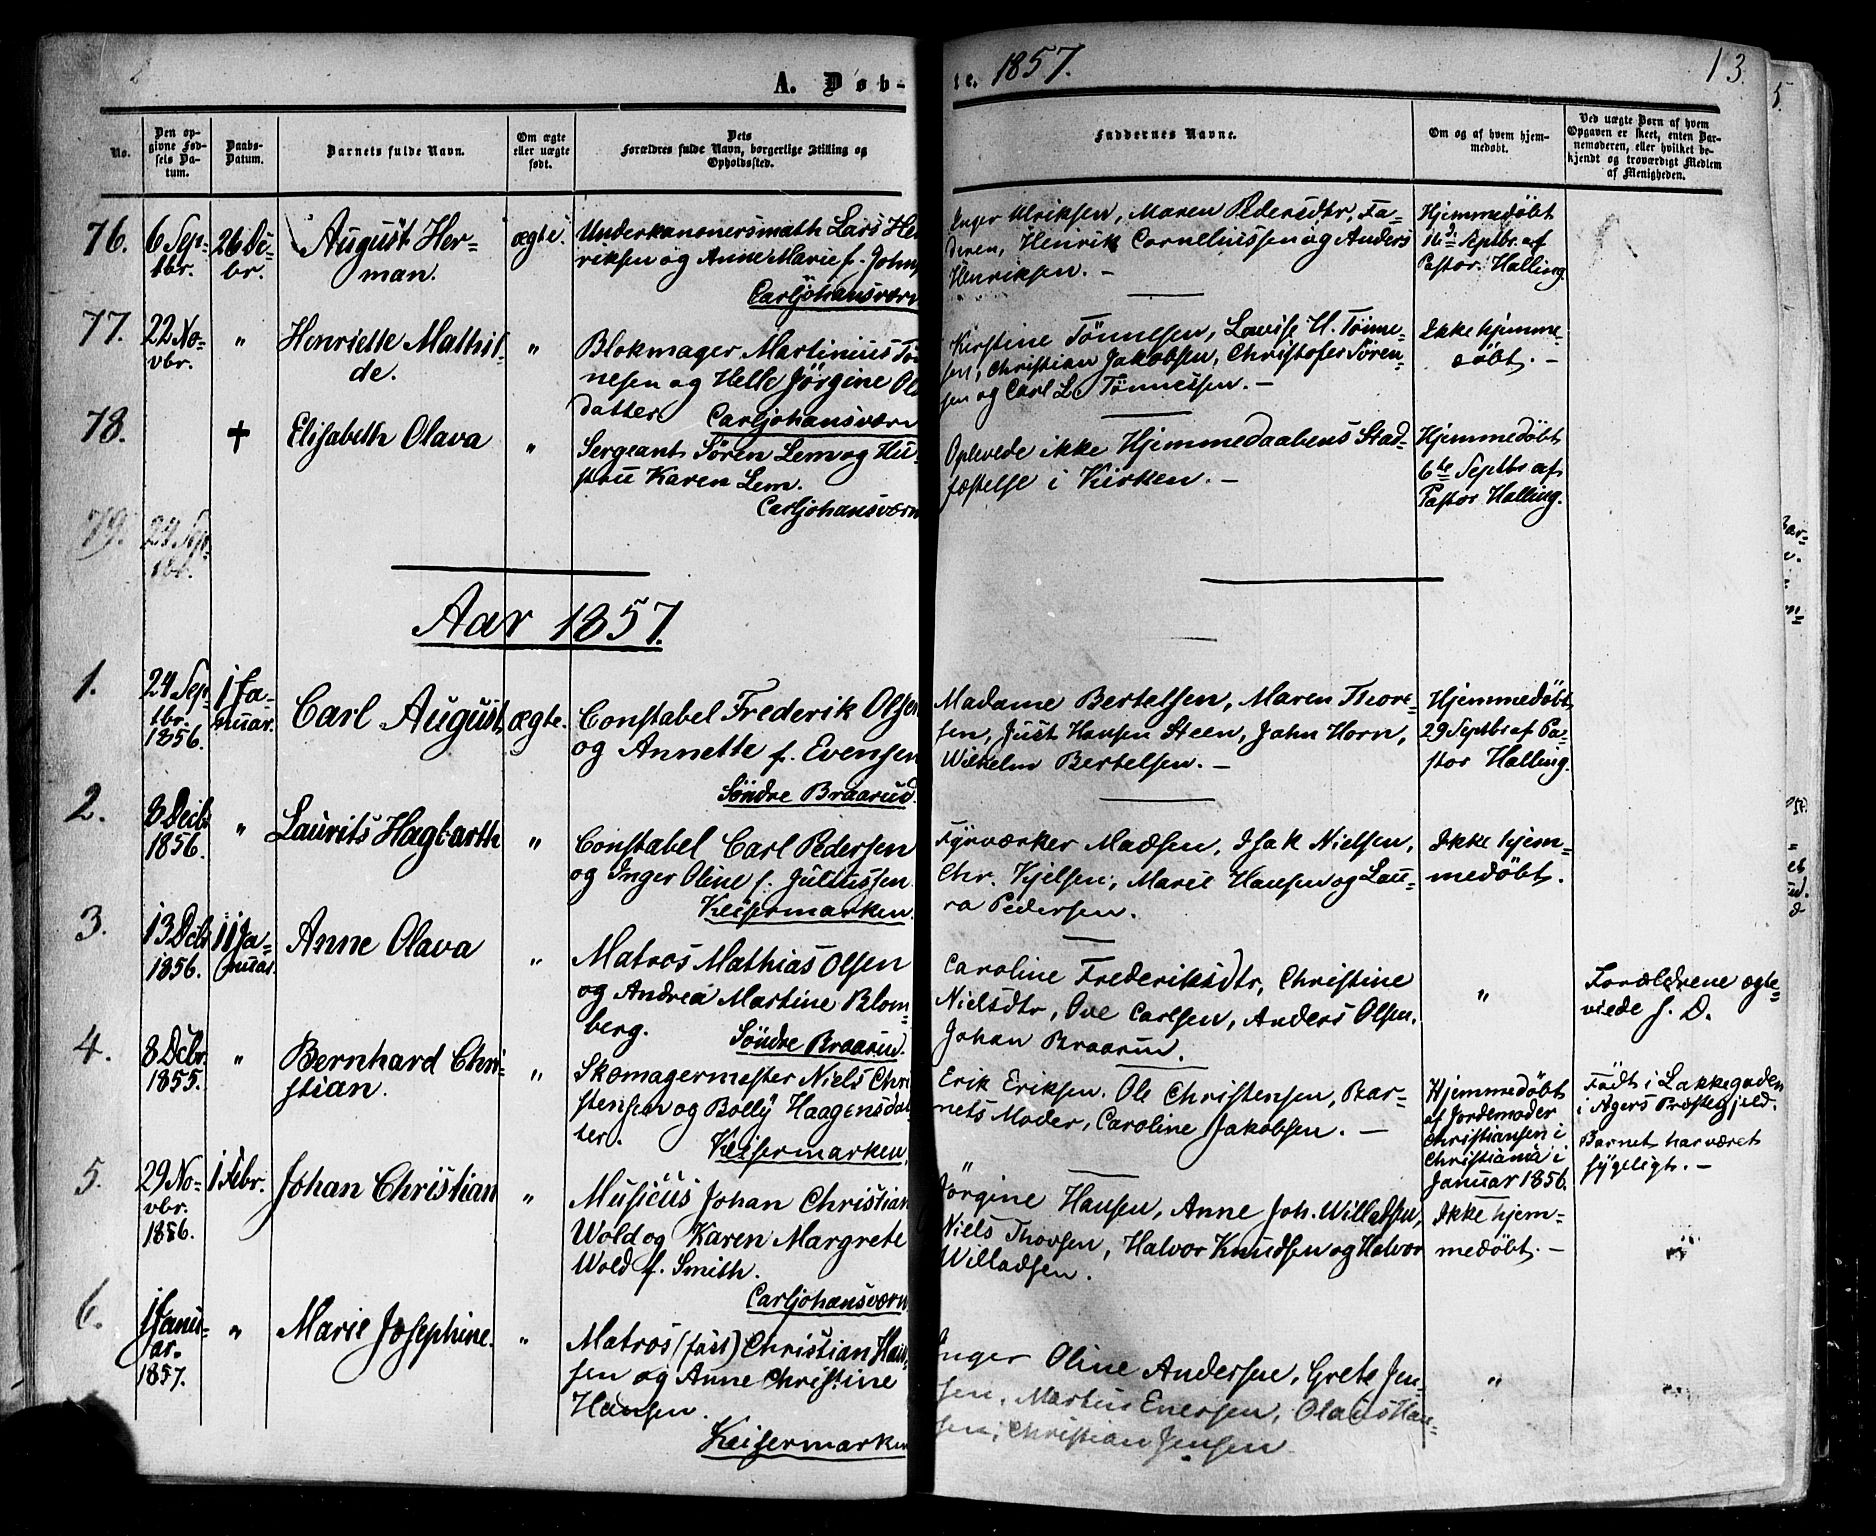 A. Døb-
te. 1857.
13.
No.
Den op-
givne Fød-
sels Da-
tum.
Daabs-
Datum.
Barnets fulde Navn.
Om ægte
eller uægte
født.
Dets
Forældres fulde Navn, borgerlige Stilling og
Opholdssted.
Faddernes Navne.
Om og af hvem hjem-
medøbt.
Ved uægte Børn af hvem
Opgaven er skeet, enten Bar-
nemoderen, eller hvilket be-
kjendt og troværdigt Medlem
af Menigheden.
76.
6 Sep-
tbr.
26 De-
br.
August Her-
man.
ægte.
Underkanonersmath Lars Hen
riksen og Anne Marie f. Johns
Carljohansværn
Inger Ulriksen, Maren Pedersdtr, Fa-
deren, Henrik Corneliussen og Anders
Henriksen. -
Hjemmedøbt
16d Septbr. af
Pastor Halling.
77.
22 No-
vbr.
"
Henriette Mathil-
de.
"
Blokmager Martinius Tön
nesen og Helle Jörgine Ols
datter Carljohansværn
Kirstine Tönnesen, Lovise H. Tönne-
sen, Christian Jakobsen, Christofer Sören-
sen og Carl L. Tönnessen. -
Ikke hjemme-
döbt. -
78.
+
Elisabeth Olava
"
Sergeant Sören Lem og Hu-
stru Karen Lem.
Carljohansværn
Oplevede ikke Hjemmedaabens Stad-
fæstelse i Kirken. -
Hjemmedöbt
6te Septbr af
Pastor Halling.
79. 24 Sep-
tbr.
Aar 1857.
1.
24 Sep-
tbr.
1856.
1 Ja-
nuar.
Carl August
ægte.
Constabel Frederik Olsen
og Annette f. Evensen
Söndre Braarud.
Madame Bertelsen, Maren Thore-
sen, Just Hansen Steen, John Horn,
Wilhelm Bertelsen. -
Hjemmedöbt
29 Septbr af Pa-
stor Halling.
2.
8 Decbr
1856.
"
Laurits Hagbarth
"
Constabel Carl Pedersen
og Inger Oline f. Juliussen.
Keisermarken.
Fyrværker Madsen, Isak Nielsen,
Chr. Kjelsen, Marie Hansen og Lau-
ra Pedersen.
Ikke hjem-
medöbt.
3.
13 Dcbr
1856.
11 Ja-
nuar.
Anne Olava
"
Matros Mathias Olsen
og Andrea Martine Blom-
berg. Söndre Braarud.
Caroline Frederiksdtr, Christine
Nielsdtr, Ove Carlsen, Anders Olsen,
Johan Braarud.
"
Forældrene ægte-
viede s. D.
4.
8 Dcbr.
1855.
"
Bernhard Chri-
stian.
"
Skomagermester Niels Chri
stensen og Bolly Haagensdat
ter. Keisermarken.
Erik Eriksen. Ole Christensen, Bar-
nets Moder, Caroline Jakobsen. -
Hjemmedöbt
af Jordemoder
Christiansen i
Christiania i
Januar 1856.
Födt i Lakkegaden
i Agers Præstegjeld.
Barnet har været
sygeligt. -
5.
29 No-
vbr.
1856.
1 Febr.
Johan Christian
"
Musicus Johan Christian
Wold og Karen Margrete
Wold f. Smith.
Carljohansværn
Jörgine Hansen, Anne Joh. Willadsen,
Niels Thovsen, Halvor Knudsen og Halvor
Willadsen.
Ikke hjem-
medöbt. -
"
6.
1 Janu-
ar.
1857.
"
Marie Josephine.
"
Matros (fast) Christian Han
sen og Anne Christine
Hansen.
Keisermarken
Inger Oline Andersen, Grete Jen-
sen, Martin Enersen, Olaus Han-
sen, Christian Jensen.
"
"